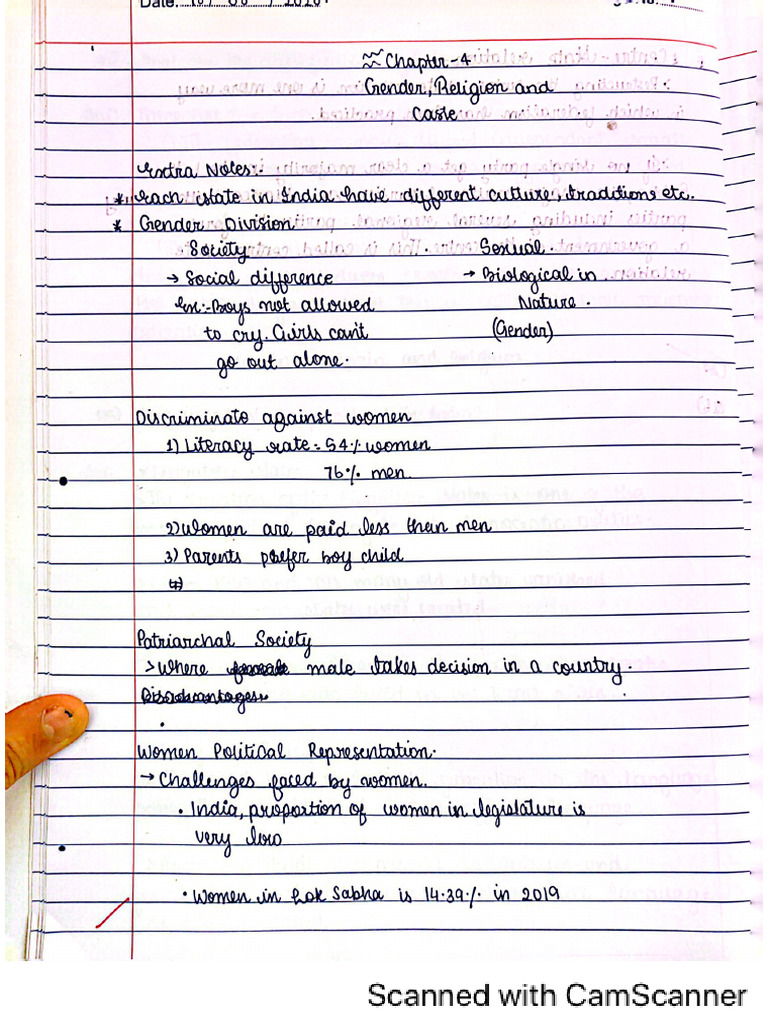 Date:
Chapter-4
Gender, Religion and
Caste
Extra Notes:-
* Each state in India have different culture, traditions etc.
* Gender Division
Society Sexual.
→ Social difference → Biological in
Ex:- Boys not allowed Nature.
to cry. Girls can't (Gender)
go out alone.
Discriminate against women
1) Literacy rate = 54% women
76% men.
2) Women are paid less than men
3) Parents prefer boy child
4)
Patriarchal Society
> Where male takes decision in a country.
Disadvantages
Women Political Representation.
→ Challenges faced by women.
• India, proportion of women in legislature is
very low
• Women in Lok Sabha is 14.39% in 2019
Scanned with CamScanner